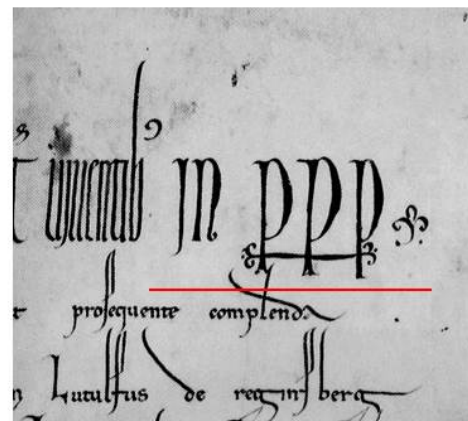 IN PPP
proſequente complenda
Lutulfus de reginſberg